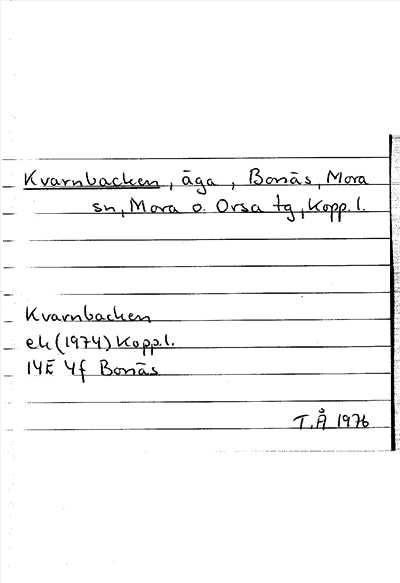 Kvarnbacken, äga, Bonäs, Mora
sn, Mora o. Orsa tg, Kopp. l.
Kvarnbacken
ek (1974) Kopp. l.
14E 4f Bonäs
T. Å 1976